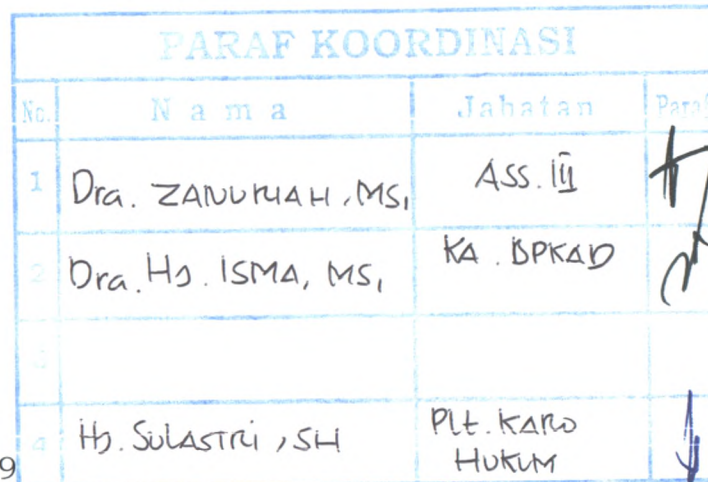 PARAF KOORDINASI
No. Nama Jabatan Paraf
1 Dra. ZANURIAH, MSi ASS. III
2 Dra. Hj. ISMA, MSi KA. BPKAD
3
4 Hj. SULASTRI, SH Plt. KARO
HUKUM
9